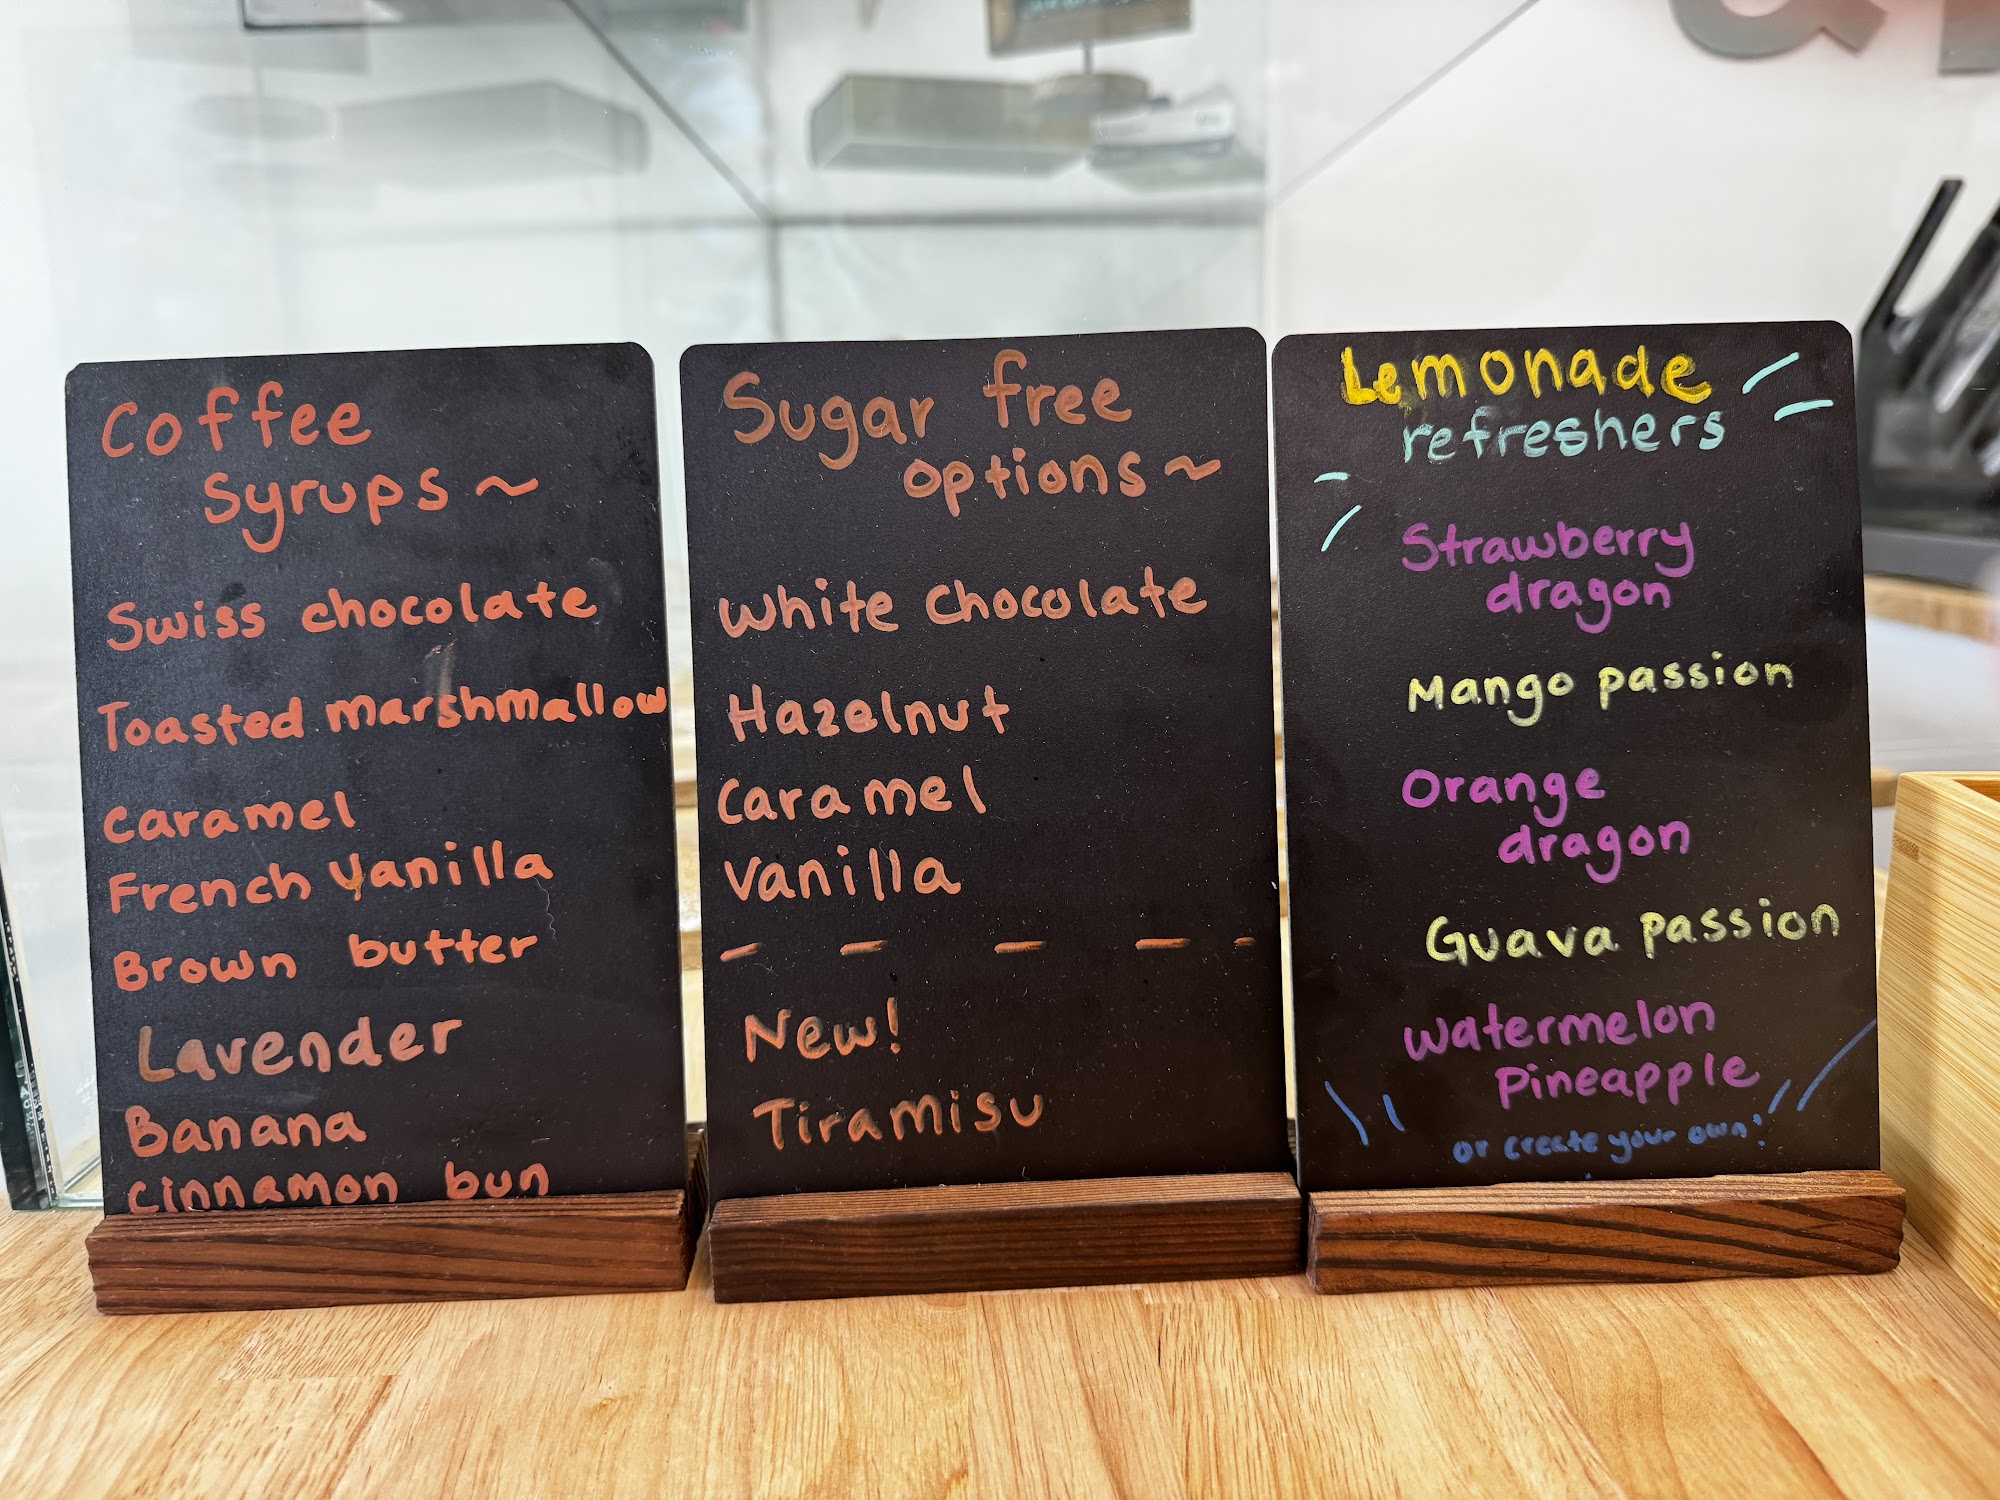 Coffee
Syrups ~
Swiss chocolate
Toasted marshmallow
Caramel
French Vanilla
Brown butter
Lavender
Banana
Cinnamon bun
Sugar free
options ~
White Chocolate
Hazelnut
Caramel
Vanilla
New!
Tiramisu
Lemonade
refreshers
Strawberry
dragon
Mango passion
Orange
dragon
Guava passion
Watermelon
Pineapple
or create your own!